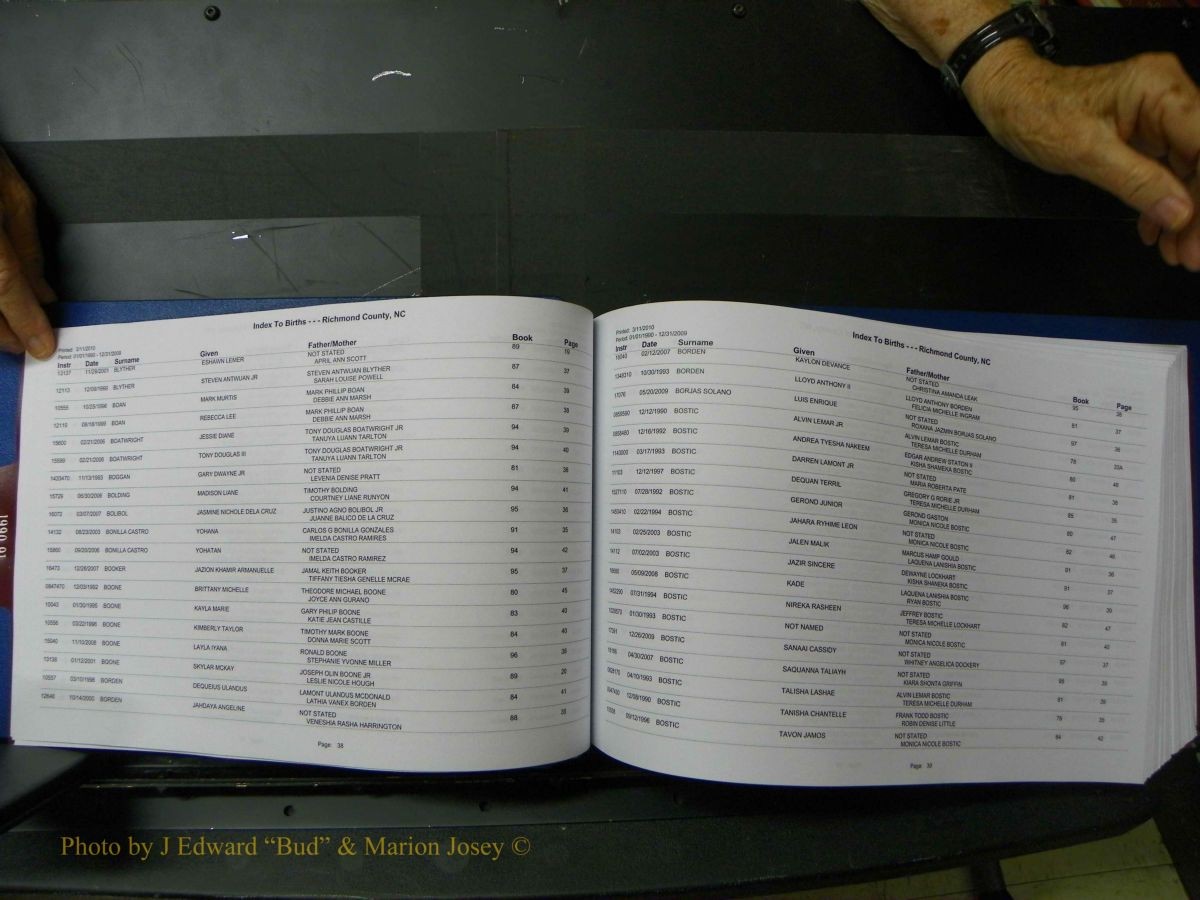 Index To Births - - - Richmond County, NC
Printed: 3/11/2010
Period: 01/01/1990 - 12/31/2009
Instr Date Surname Given Father/Mother Book Page
12137 11/29/2001 BLYTHER ESHAWN LEMER NOT STATED 89 19
APRIL ANN SCOTT
12113 BLYTHER STEVEN ANTWUAN JR STEVEN ANTWUAN BLYTHER 87 37
SARAH LOUISE POWELL
10555 10/25/1996 BOAN MARK MURTIS MARK PHILLIP BOAN 84 39
DEBBIE ANN MARSH
12110 BOAN REBECCA LEE MARK PHILLIP BOAN 87 38
DEBBIE ANN MARSH
15600 02/21/2006 BOATWRIGHT JESSIE DIANE TONY DOUGLAS BOATWRIGHT JR 94 39
TANUYA LUANN TARLTON
15599 02/21/2006 BOATWRIGHT TONY DOUGLAS III TONY DOUGLAS BOATWRIGHT JR 94 40
TANUYA LUANN TARLTON
1433470 11/13/1993 BOGGAN GARY DWAYNE JR NOT STATED 81 38
LEVENIA DENISE PRATT
15729 06/30/2006 BOLDING MADISON LIANE TIMOTHY BOLDING 94 41
COURTNEY LIANE RUNYON
16072 03/07/2007 BOLIBOL JASMINE NICHOLE DELA CRUZ JUSTINO AGNO BOLIBOL JR 95 36
JUANNE BALICO DE LA CRUZ
14132 08/23/2003 BONILLA CASTRO YOHANA CARLOS G BONILLA GONZALES 91 35
IMELDA CASTRO RAMIRES
15860 09/20/2006 BONILLA CASTRO YOHATAN NOT STATED 94 42
IMELDA CASTRO RAMIREZ
16473 12/26/2007 BOOKER JAZION KHAMIR ARMANUELLE JAMAL KEITH BOOKER 95 37
TIFFANY TIESHA GENELLE MCRAE
0847470 12/03/1992 BOONE BRITTANY MICHELLE THEODORE MICHAEL BOONE 80 45
JOYCE ANN GURANO
10043 01/30/1995 BOONE KAYLA MARIE GARY PHILIP BOONE 83 40
KATIE JEAN CASTILLE
10556 03/22/1996 BOONE KIMBERLY TAYLOR TIMOTHY MARK BOONE 84 40
DONNA MARIE SCOTT
11/10/2008 BOONE LAYLA IYANA RONALD BOONE 96 36
STEPHANIE YVONNE MILLER
13138 01/12/2001 BOONE SKYLAR MCKAY JOSEPH OLIN BOONE JR 89 20
LESLIE NICOLE HOUGH
10557 03/10/1996 BORDEN DEQUEIUS ULANDUS LAMONT ULANDUS MCDONALD 84 41
LATHIA VANEX BORDEN
12646 10/14/2000 BORDEN JAHDAYA ANGELINE NOT STATED 88
VENESHIA RASHA HARRINGTON
Page: 38
Index To Births - - - Richmond County, NC
Printed: 3/11/2010
Period: 01/01/1990 - 12/31/2009
Instr Date Surname Given Father/Mother Book Page
16043 02/12/2007 BORDEN KAYLON DEVANCE NOT STATED 95 38
CHRISTINA AMANDA LEAK
10/30/1993 BORDEN LLOYD ANTHONY II LLOYD ANTHONY BORDEN 81 37
FELICIA MICHELLE INGRAM
17076 05/20/2009 BORJAS SOLANO LUIS ENRIQUE NOT STATED 97 36
ROXANA JAZMIN BORJAS SOLANO
12/12/1990 BOSTIC ALVIN LEMAR JR ALVIN LEMAR BOSTIC 78 33A
TERESA MICHELLE DURHAM
12/16/1992 BOSTIC ANDREA TYESHA NAKEEM EDGAR ANDREW STATON II 80 46
KISHA SHAMEKA BOSTIC
03/17/1993 BOSTIC DARREN LAMONT JR NOT STATED 81 38
MARIA ROBERTA PATE
11103 12/12/1997 BOSTIC DEQUAN TERRIL GREGORY G RORIE JR 85 35
TERESA MICHELLE DURHAM
07/28/1992 BOSTIC GEROND JUNIOR GEROND GASTON 80 47
MONICA NICOLE BOSTIC
02/22/1994 BOSTIC JAHARA RYHIME LEON NOT STATED 82 46
MONICA NICOLE BOSTIC
14103 02/25/2003 BOSTIC JALEN MALIK MARCUS HAMP GOULD 91 36
LAQUENA LANISHIA BOSTIC
14112 07/02/2003 BOSTIC JAZIR SINCERE DEWAYNE LOCKHART 91 37
KISHA SHANEKA BOSTIC
05/09/2008 BOSTIC KADE LAQUENA LANISHIA BOSTIC 96 39
RYAN BOSTIC
07/31/1994 BOSTIC NIREKA RASHEEN JEFFREY BOSTIC 82 47
TERESA MICHELLE LOCKHART
01/30/1993 BOSTIC NOT NAMED NOT STATED 81 40
MONICA NICOLE BOSTIC
12/26/2009 BOSTIC SANAAI CASSIDY NOT STATED 97 37
WHITNEY ANGELICA DOCKERY
04/30/2007 BOSTIC SAQUANNA TALIAYH NOT STATED 95 39
KIARA SHONTA GRIFFIN
04/10/1993 BOSTIC TALISHA LASHAE ALVIN LEMAR BOSTIC 81 39
TERESA MICHELLE DURHAM
12/08/1990 BOSTIC TANISHA CHANTELLE FRANK TODD BOSTIC 78 35
ROBIN DENISE LITTLE
09/12/1996 BOSTIC TAVON JAMOS NOT STATED 84 42
MONICA NICOLE BOSTIC
Page: 39
Photo by J Edward “Bud” & Marion Josey ©